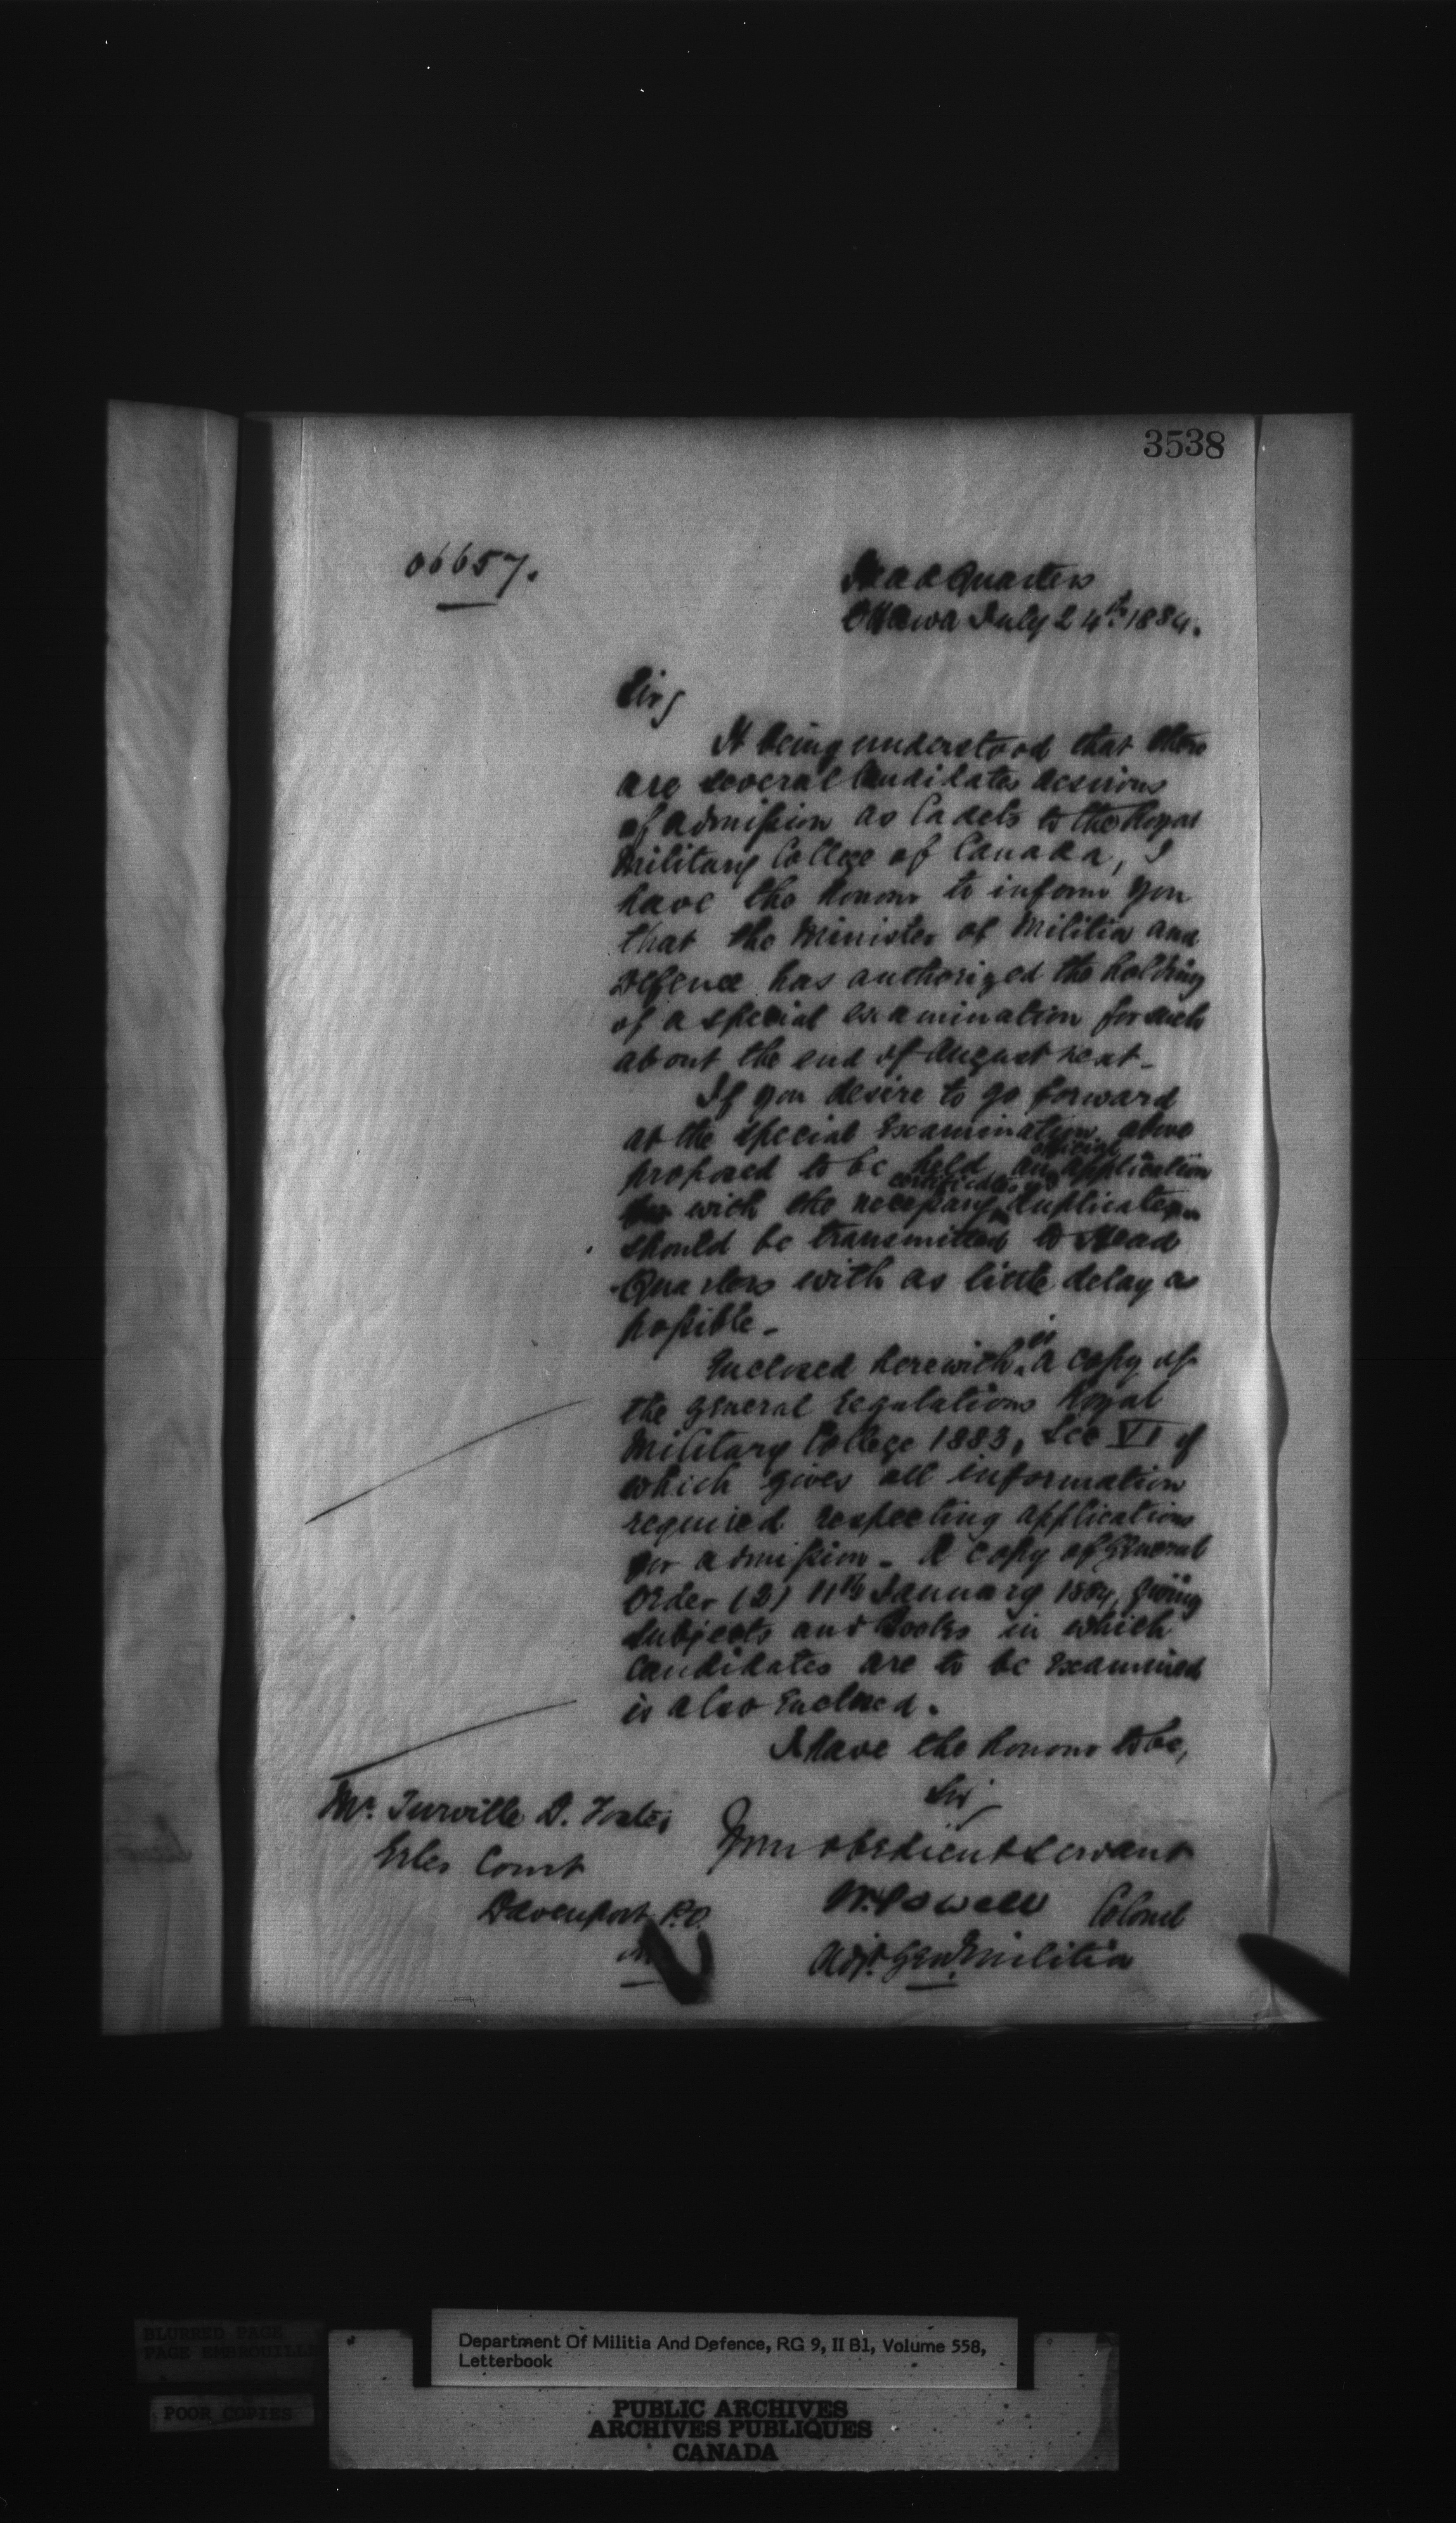 3538
06657.
Head Quarters
Ottawa July 24th 1884.
Sir,
It being understood that there
are several Candidates desirous
of admission as Cadets to the Royal
Military College of Canada, I
have the honour to inform you
that the Minister of Militia and
Defence has authorized the holding
of a special examination for such
about the end of August next -
If you desire to go forward
at the special Examination above
official
proposed to be held an application
certificates
with the necessary duplicate
should be transmitted to Head
Quarters with as little delay as
possible -
is
Enclosed herewith a copy of
the General Regulations Royal
Military College 1883, Sec VI of
which gives all information
required respecting applications
for admission - A copy of General
Order (2) 11th January 1884, giving
subjects and Books in which
Candidates are to be Examined
is also Enclosed.
I have the honour to be,
Sir
Your obedient Servant
W. Powell Colonel
Adjt. Genl. Militia
Mr. Turville D. Foster,
Erles Court
Davenport P.O.
BLURRED PAGE
PAGE EMBROUILLÉE
POOR COPIES
Department Of Militia And Defence, RG 9, II B1, Volume 558,
Letterbook
PUBLIC ARCHIVES
ARCHIVES PUBLIQUES
CANADA